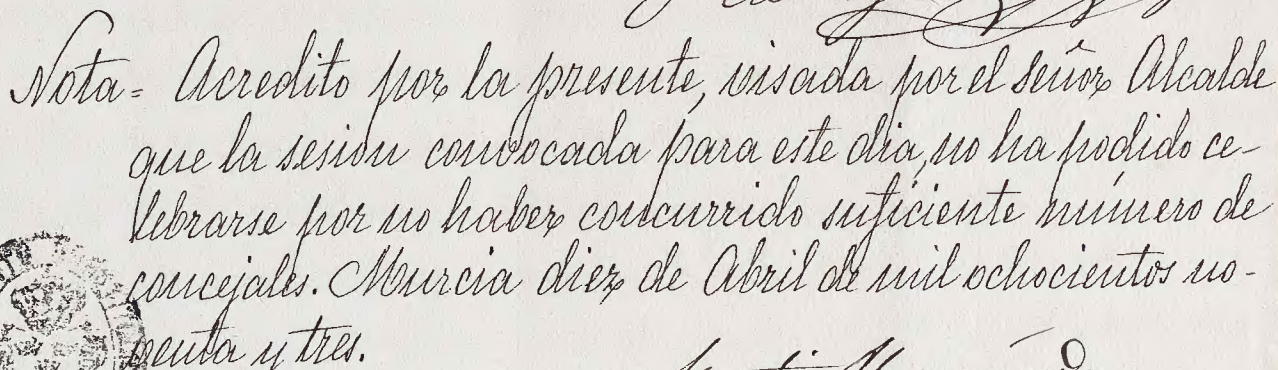 Nota = Acredito por la presente, visada por el señor Alcalde
que la sesion convocada para este dia, no ha podido ce-
lebrarse por no haber concurrido suficiente número de
concejales. Murcia diez de Abril de mil ochocientos no-
venta y tres.